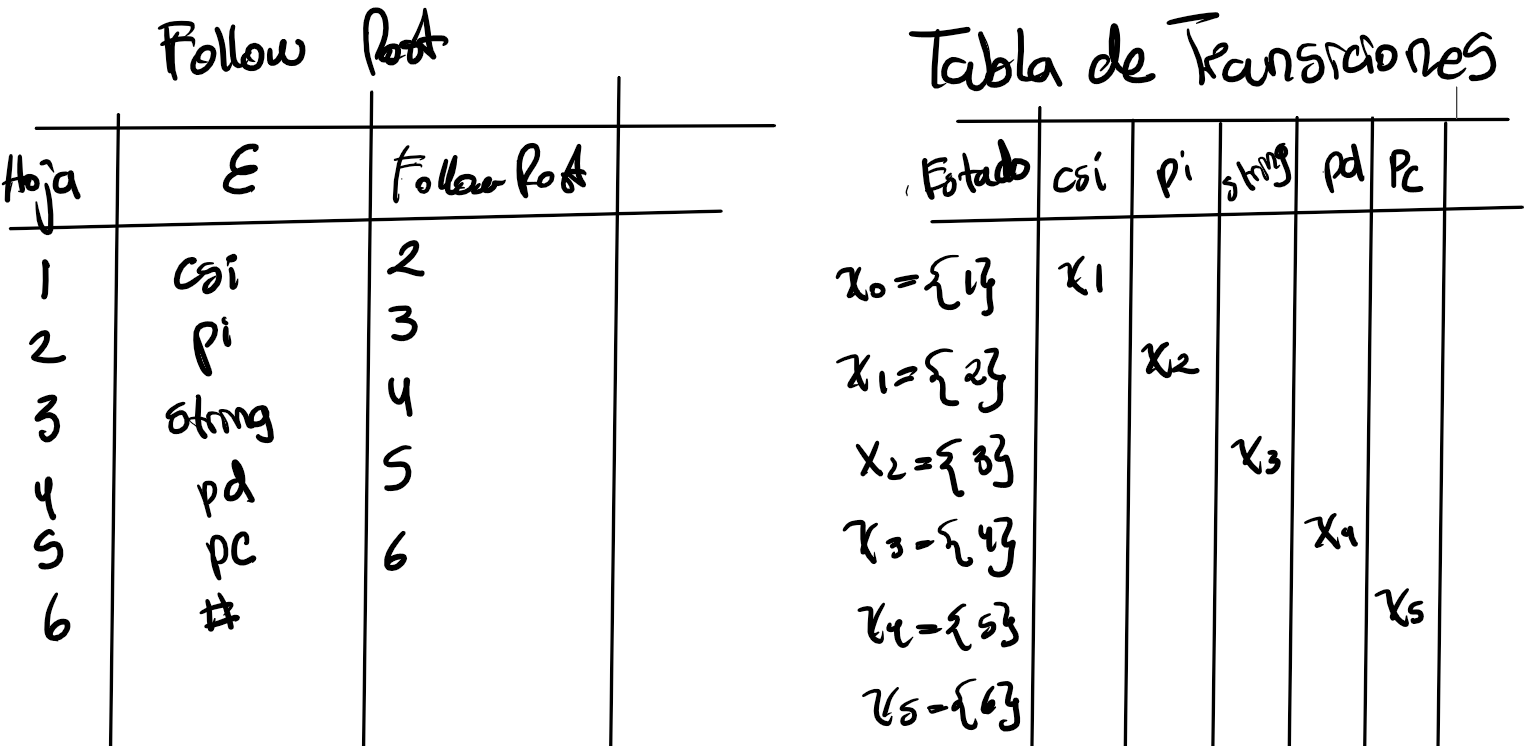 Follow Post
Hoja Ɛ Follow Post
1 csi 2
2 pi 3
3 string 4
4 pd 5
5 pc 6
6 #
Tabla de Transiciones
Estado csi pi string pd Pc
X0={1} X1
X1={2} X2
X2={3} X3
X3={4} X4
X4={5} X5
X5={6}